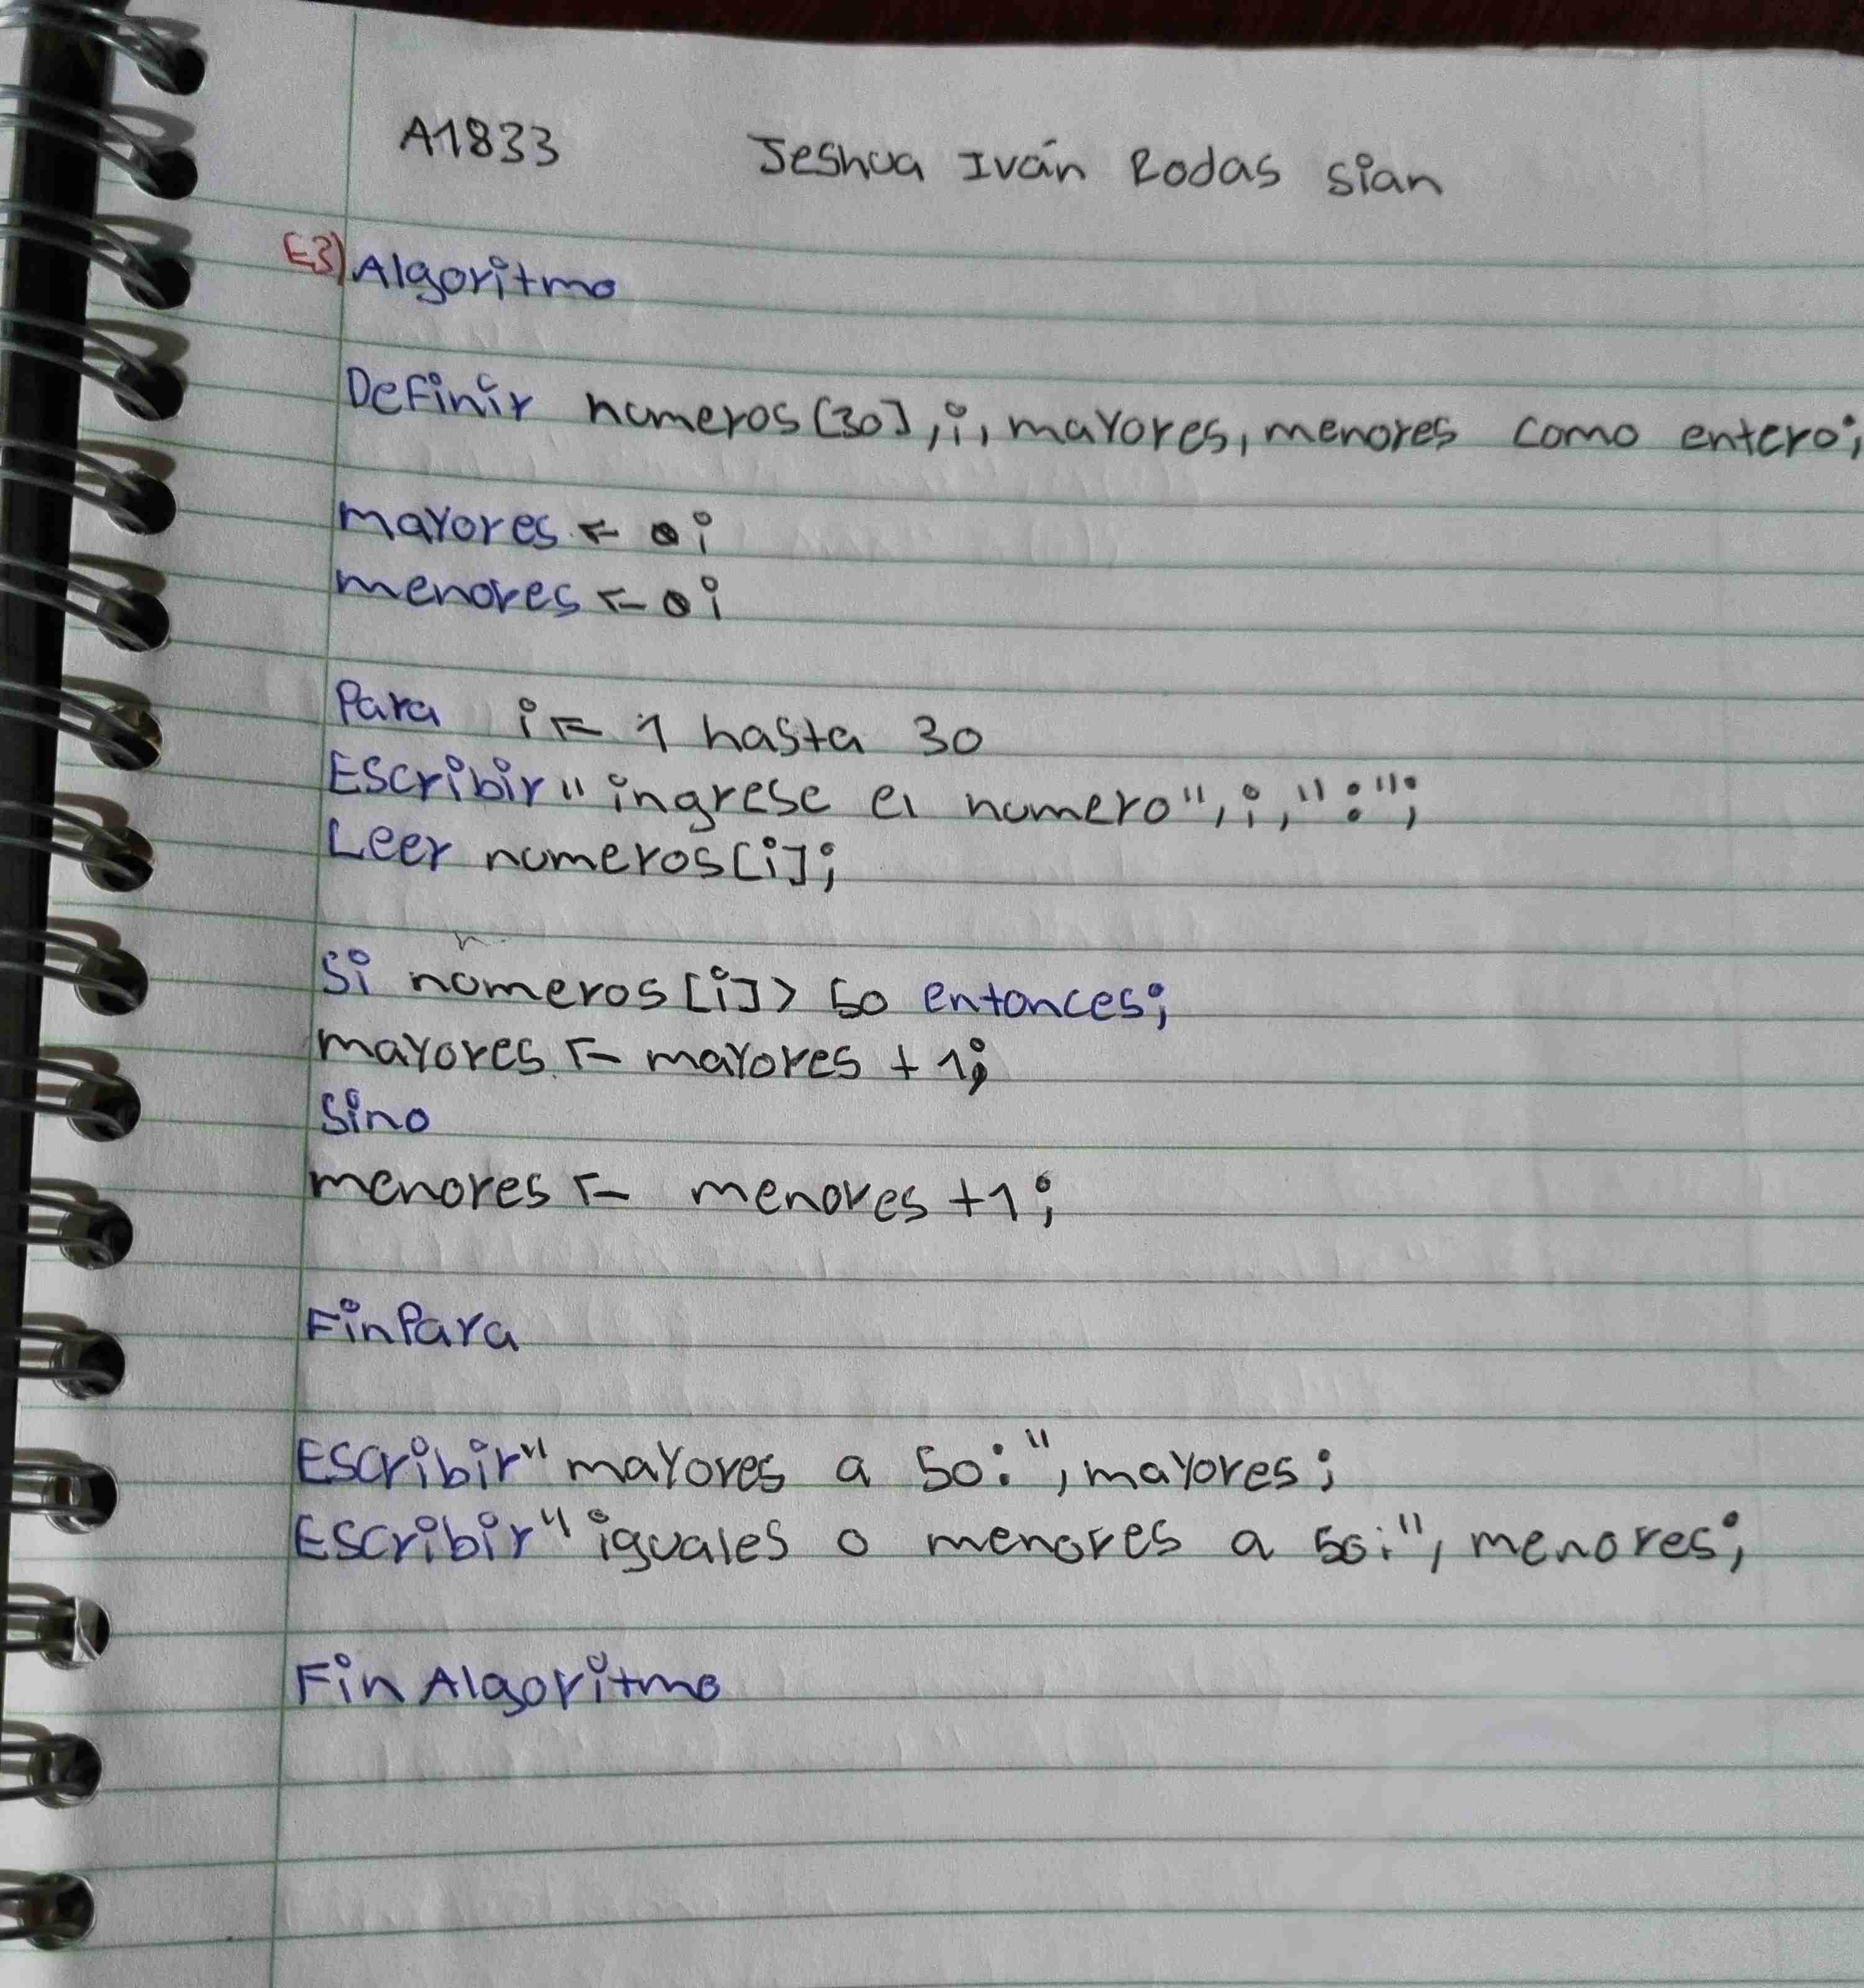 A1833 Jeshua Iván Rodas Sian
E3) Algoritmo
Definir numeros[30], i, mayores, menores como entero;
mayores ← 0;
menores ← 0;
Para i ← 1 hasta 30
Escribir "ingrese el numero", i, ":";
Leer numeros[i];
Si numeros[i] > 50 entonces;
mayores ← mayores + 1;
Sino
menores ← menores + 1;
FinPara
Escribir "mayores a 50:", mayores;
Escribir "iguales o menores a 50:", menores;
Fin Algoritmo